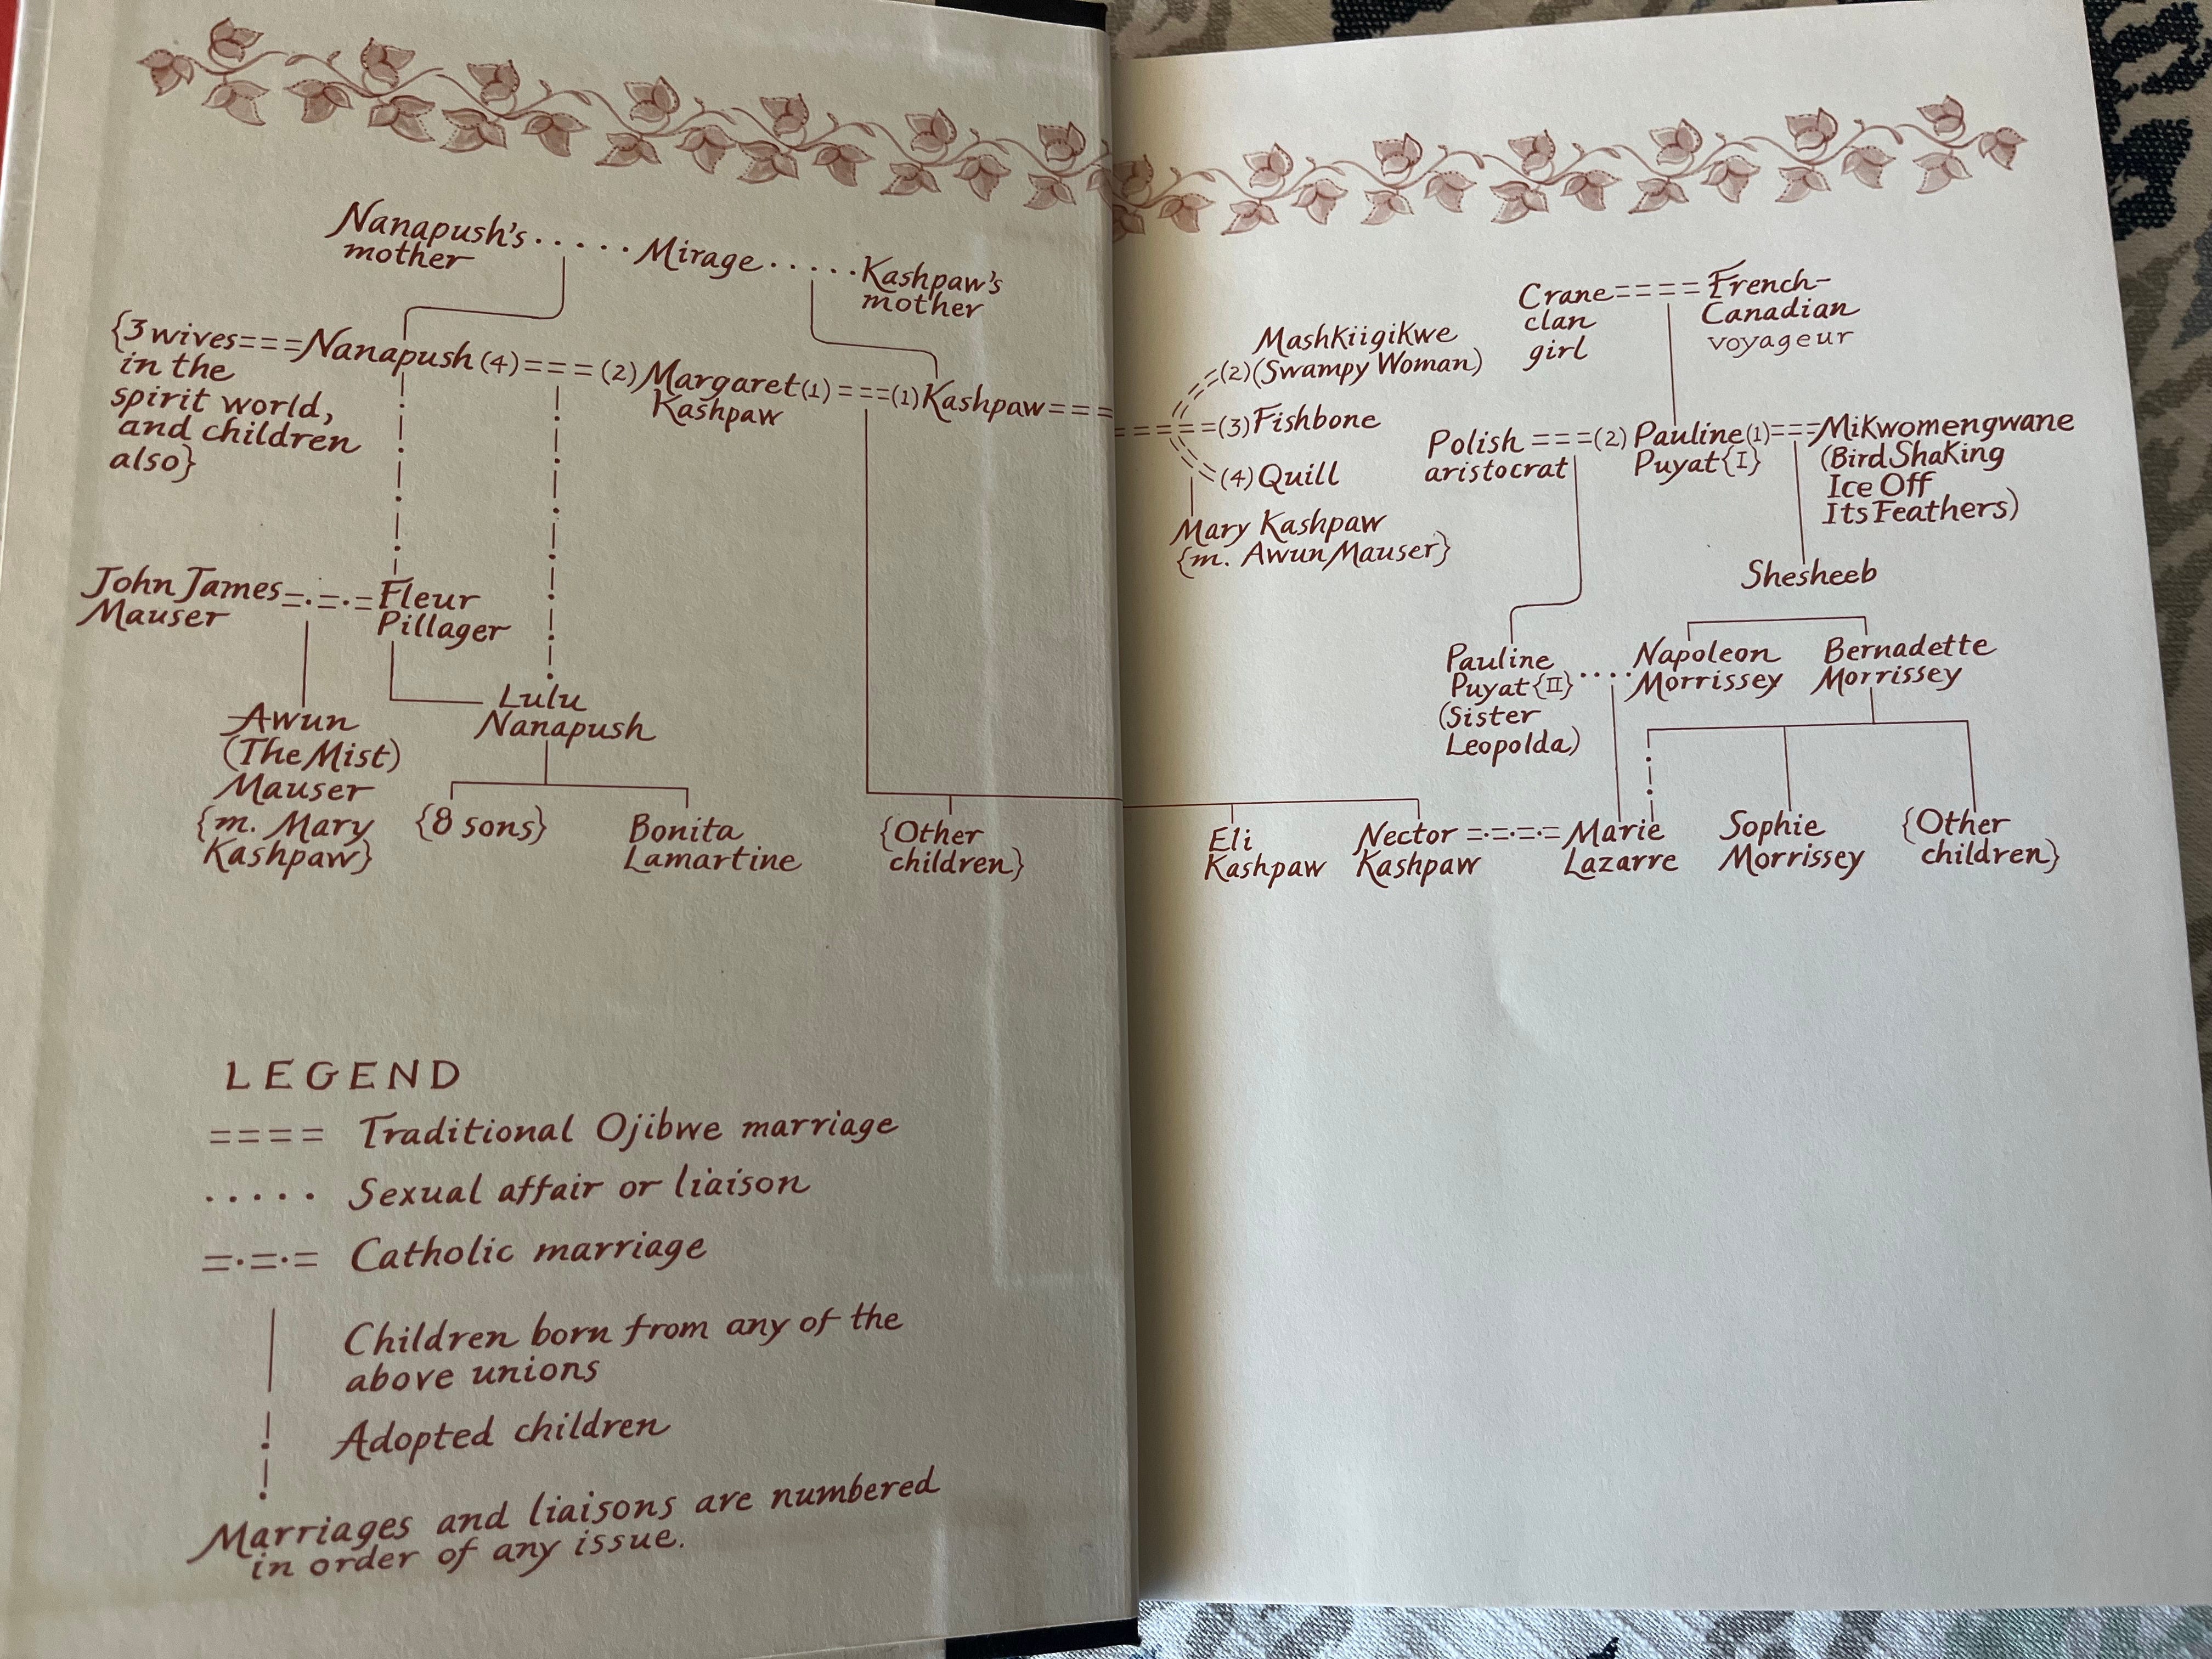 Nanapush's ..... Mirage ..... Kashpaw's
mother
mother
{3 wives===Nanapush (4) ===(2) Margaret (1) ===(1) Kashpaw===
in the
spirit world,
and children
also}
Kashpaw
John James =.=.= Fleur
Mauser
Pillager
Awun
(The Mist)
Mauser
{m. Mary
Kashpaw}
Lulu
Nanapush
{8 sons}
Bonita
Lamartine
{Other
children}
LEGEND
==== Traditional Ojibwe marriage
..... Sexual affair or liaison
=.=.= Catholic marriage
Children born from any of the
above unions
Adopted children
Marriages and liaisons are numbered
in order of any issue.
Mashkiigikwe
(2) (Swampy Woman)
=====(3) Fishbone
(4) Quill
Mary Kashpaw
{m. Awun Mauser}
Crane==== French-
clan
girl
Canadian
voyageur
Polish ===(2) Pauline (1)=== Mikwomengwane
aristocrat
Puyat {I}
(Bird Shaking
Ice Off
Its Feathers)
Shesheeb
Pauline
Puyat {II} ....
(Sister
Leopolda)
Napoleon
Morrissey
Bernadette
Morrissey
Eli
Kashpaw
Nector =.=.=.= Marie
Kashpaw
Lazarre
Sophie
Morrissey
{Other
children}